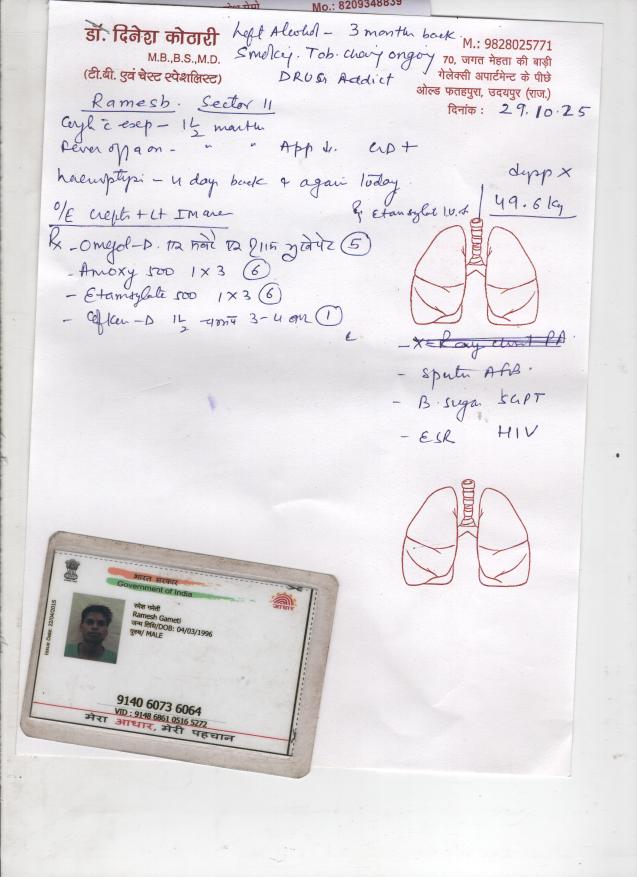 Mo.: 8209348839
डॉ. दिनेश कोठारी
M.B.,B.S.,M.D.
(टी.बी. एवं चेस्ट स्पेशलिस्ट)
Left Alcohol - 3 month back
Smoking. Tob. ongoing
DRUG Addict
M.: 9828025771
70, जगत मेहता की बाड़ी
गेलेक्सी अपार्टमेन्ट के पीछे
ओल्ड फतहपुरा, उदयपुर (राज.)
दिनांक : 29.10.25
Ramesh. Sector 11
1 1/2 month
Fever off & on - " " App ↓.
haemoptysis - 4 day back & again Today
49.6 kg
O/E Crepts + Lt
Rx - Omejol-D. 5
- Amoxy 500 1 x 3 6
- Etamsylate 500 1 x 3 6
- 1 1/2 चम्मच 3-4 बार 1
- X-Ray chest PA
- Sputum AFB.
- B. sugar SGPT
- ESR HIV
भारत सरकार
Government of India
आधार
Issue Date: 22/04/2015
रमेश गमेती
Ramesh Gameti
जन्म तिथि/DOB: 04/03/1996
पुरुष/ MALE
9140 6073 6064
VID : 9148 6861 0516 5272
मेरा आधार, मेरी पहचान